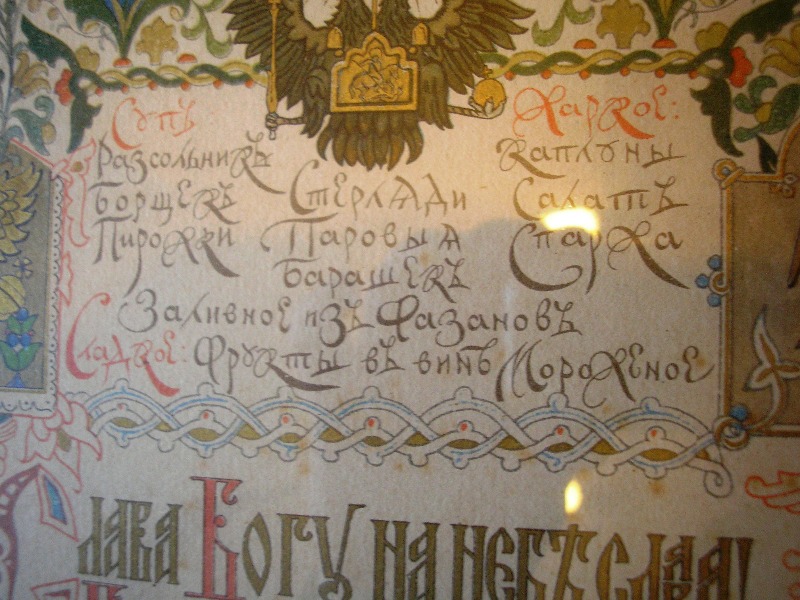 Супъ Жаркое:
Разсольникъ каплуны
Борщекъ Стерлѧди Салатъ
Пирожки Паровыѧ Спаржа
Барашекъ
Заливное изъ Фазановъ
Сладкое: Фрукты въ винѣ Мороженое
СЛАВА БОГУ НА НЕБѢ СЛАВА!